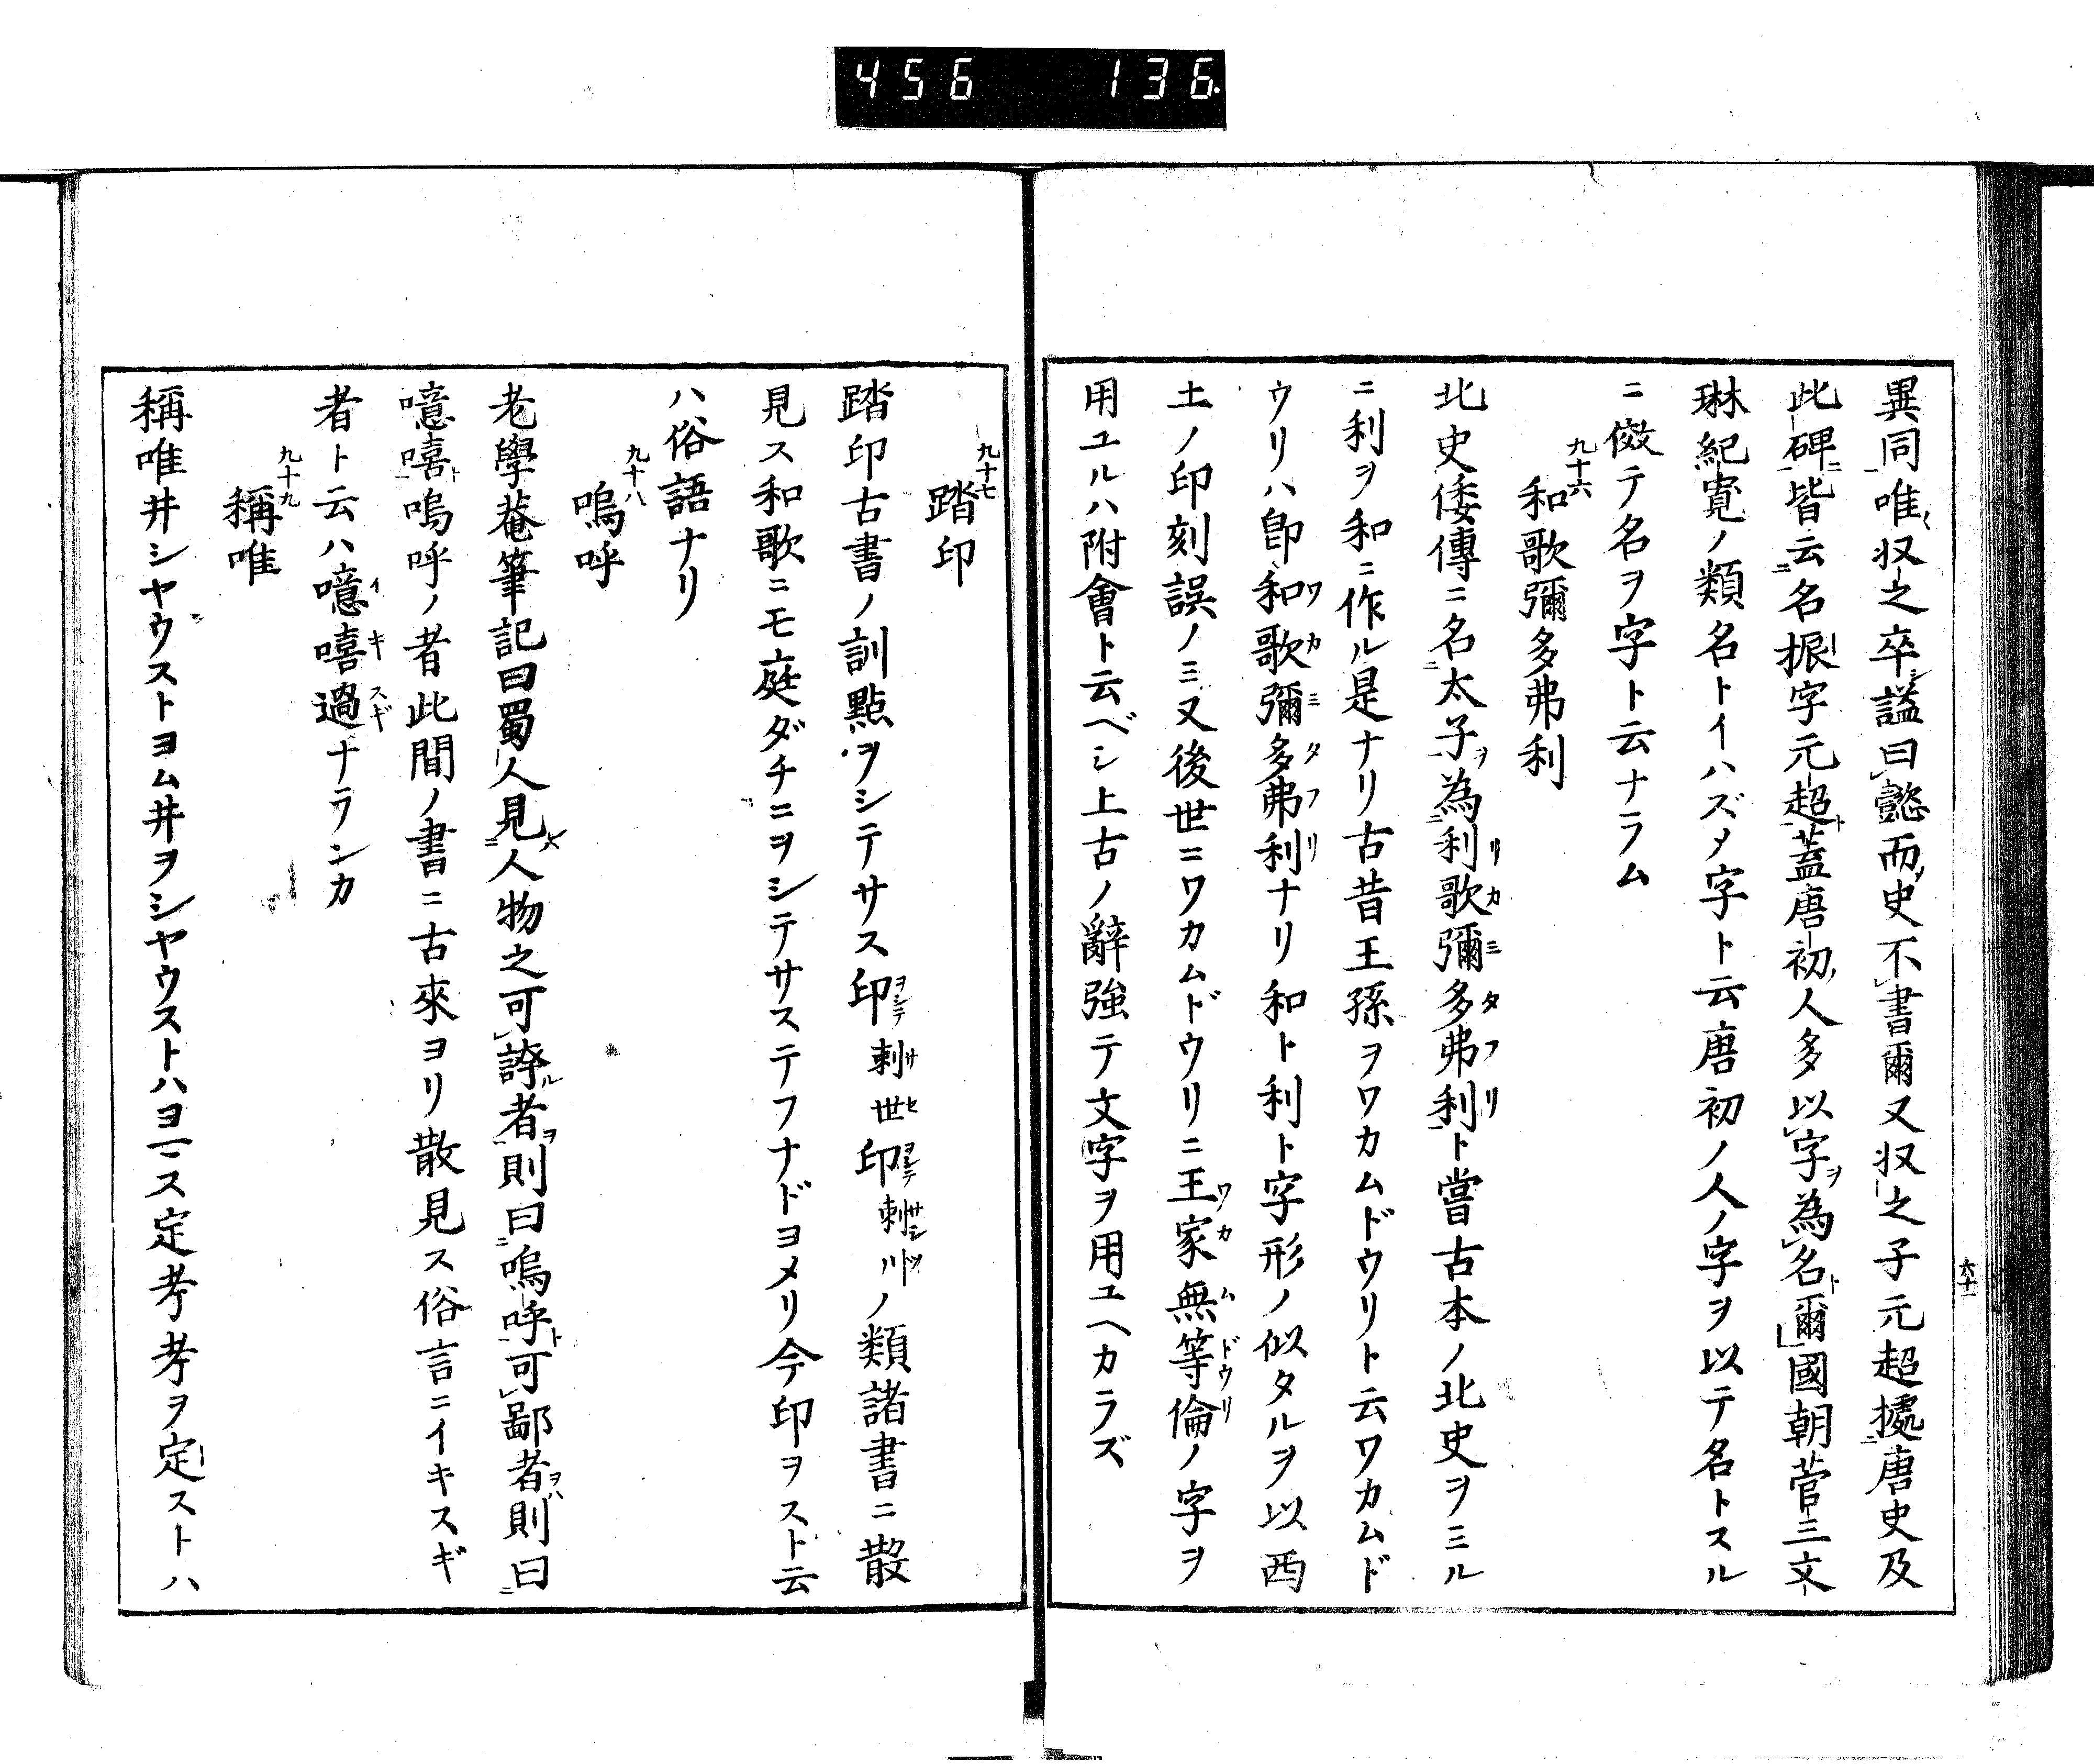 456 136.
異同唯収之卒諡曰懿而史不書爾又収之子元超據唐史及
此碑皆云名振字元超蓋唐初人多以字為名爾國朝菅三文
琳紀寛ノ類名トイハズメ字ト云唐初ノ人ノ字ヲ以テ名トスル
ニ傚テ名ヲ字ト云ナラム
九十六
和歌彌多弗利
北史倭傳ニ名太子為利歌彌多弗利ト當古本ノ北史ヲミル
ニ利ヲ和ニ作ル是ナリ古昔王孫ヲワカムドウリト云ワカムド
ウリハ卽和歌彌多弗利ナリ和ト利ト字形ノ似タルヲ以西
土ノ印刻誤ノミ又後世ニワカムドウリニ王家無等倫ノ字ヲ
用ユルハ附會ト云ベシ上古ノ辭強テ文字ヲ用ユヘカラズ
六十一
九十七
踏印
踏印古書ノ訓點ヲシテサス印刺世印刺川ノ類諸書ニ散
見ス和歌ニモ庭ダチニヲシテサステフナドヨメリ今印ヲスト云
ハ俗語ナリ
九十八
嗚呼
老學菴筆記曰蜀人見人物之可誇者則曰嗚呼可鄙者則曰
噫嘻嗚呼ノ者此間ノ書ニ古來ヨリ散見ス俗言ニイキスギ
者ト云ハ噫嘻過ナランカ
九十九
稱唯
稱唯井シヤウストヨム井ヲシヤウストハヨマス定考考ヲ定ストハ